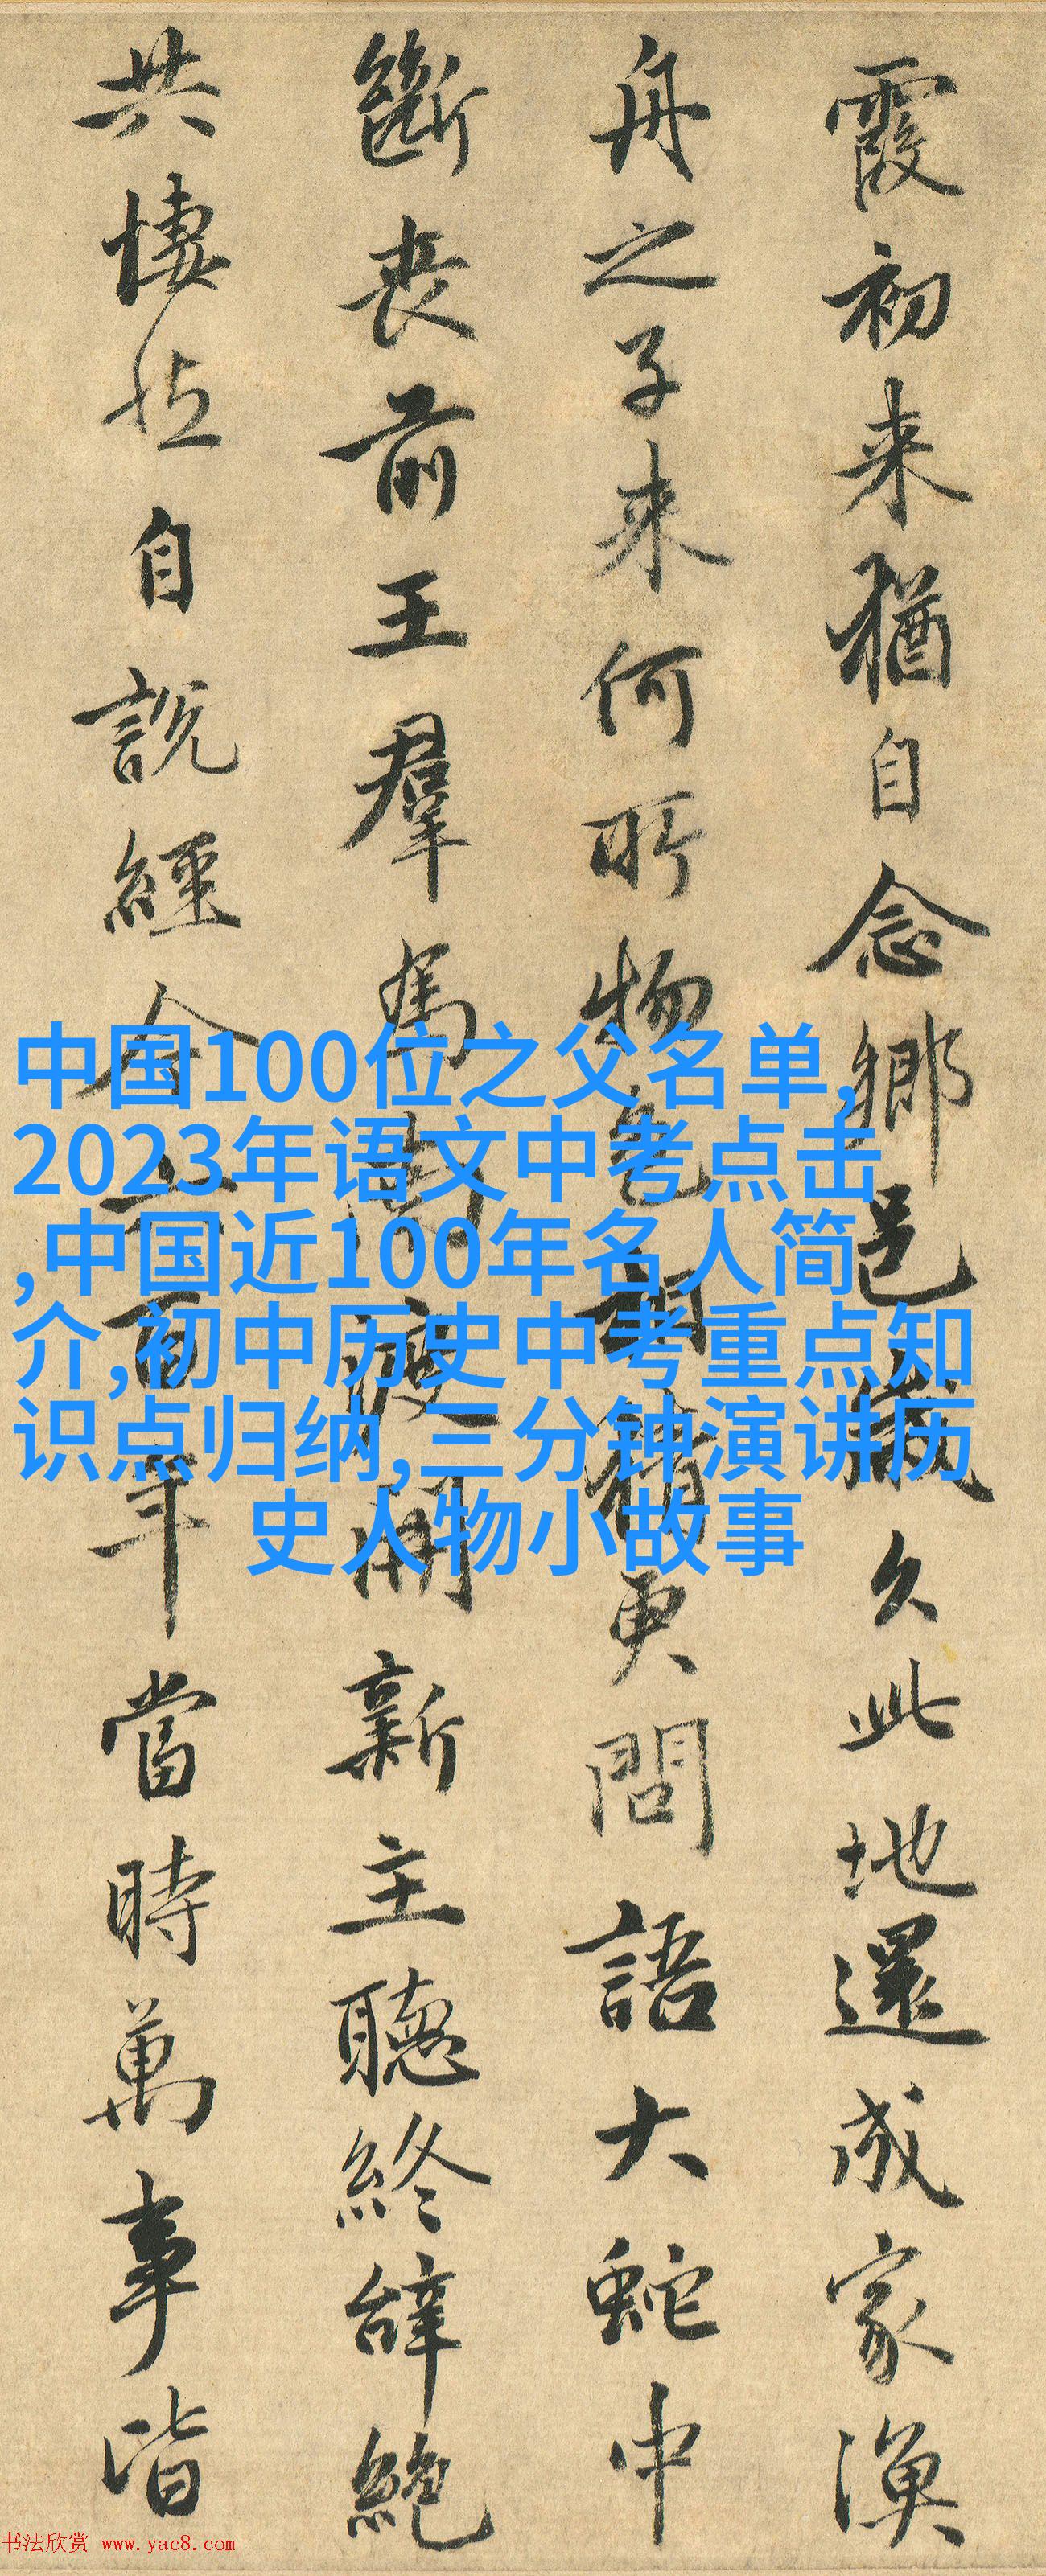 霞初来猶自念鄉邑歲久此地還成家漁
舟之子来何所物色相猜更問語大蛇中
斷丧前王羣馬南渡開新主聽終辞絶
共悽然自說經今六百年當時萬事皆
中国100位之父名单,
2023年语文中考点击
,中国近100年名人简
介,初中历史中考重点知
识点归纳,三分钟演讲历
史人物小故事
书法欣赏 www.yac8.com